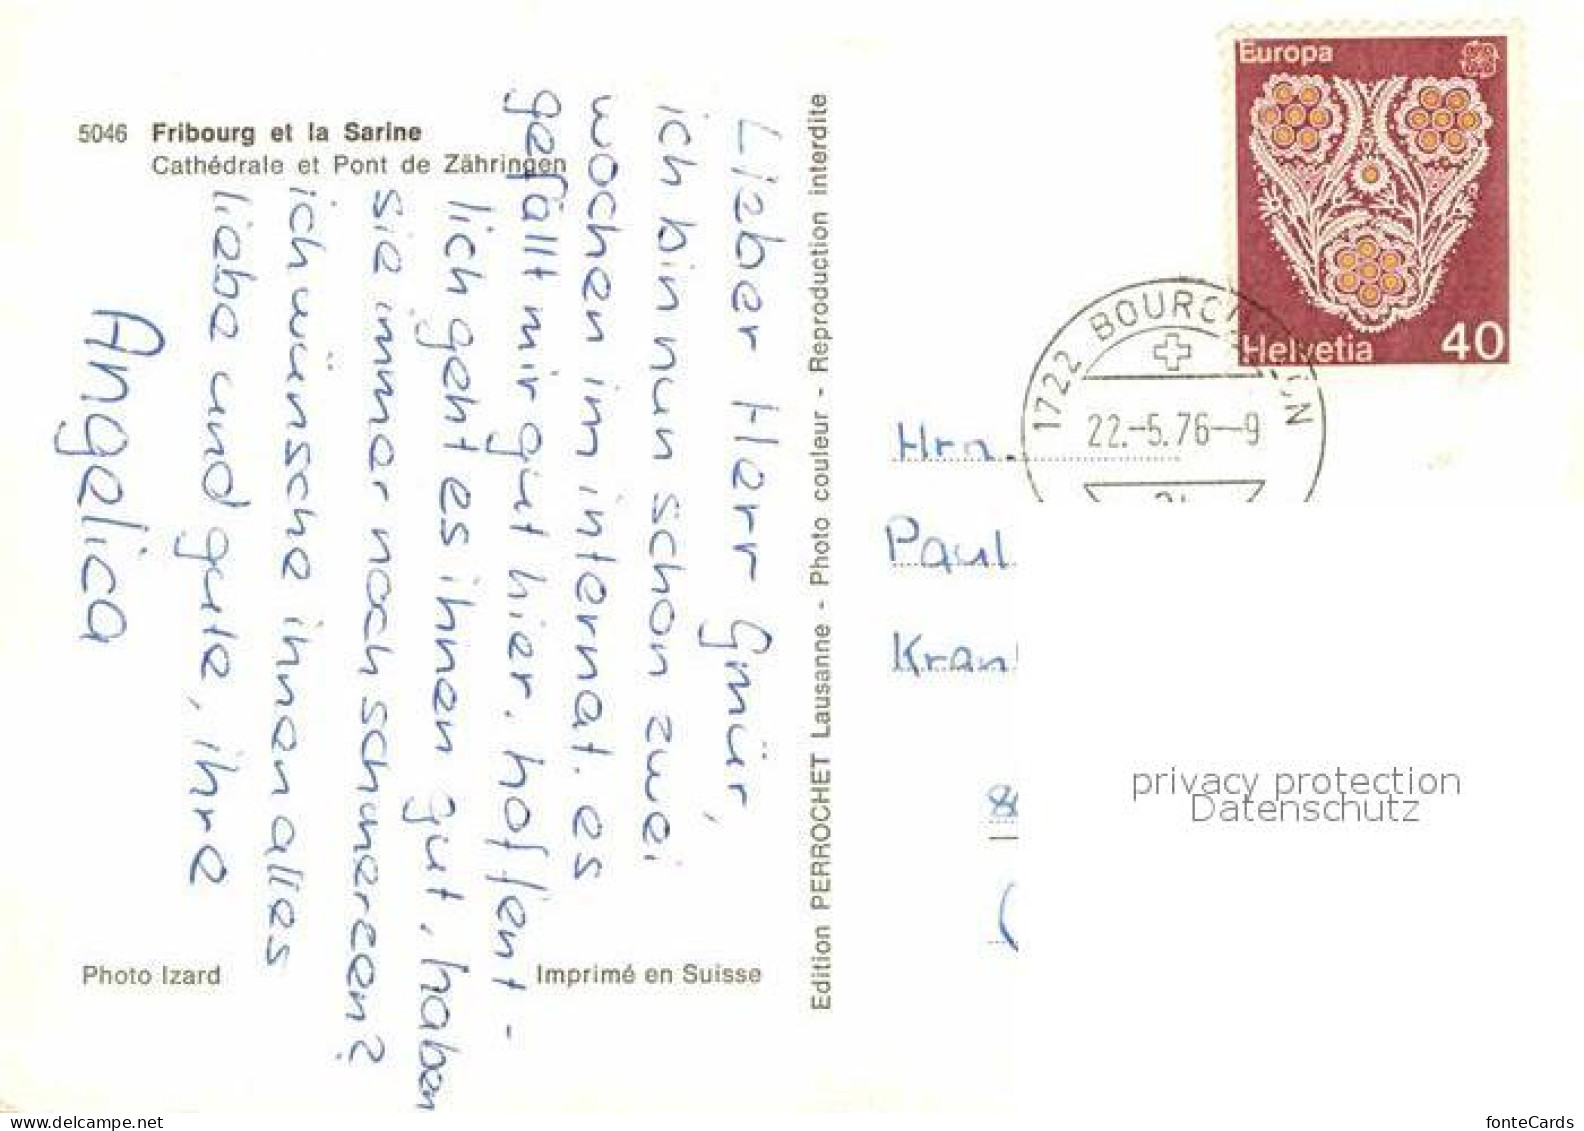 5046 Fribourg et la Sarine
Cathédrale et Pont de Zähringen
Lieber Herr Gmür,
ich bin nun schon zwei
wochen im internat. es
gefällt mir gut hier. hoffent-
lich geht es ihnen gut, haben
sie immer noch schmerzen?
ich wünsche ihnen alles
liebe und gute, ihre
Angelica
Photo Izard
Imprimé en Suisse
Edition PERROCHET Lausanne - Photo couleur - Reproduction interdite
Europa
Helvetia 40
1722 BOURG
22.-5.76-9
Hrn.
Paul
privacy protection
Datenschutz
fonteCards